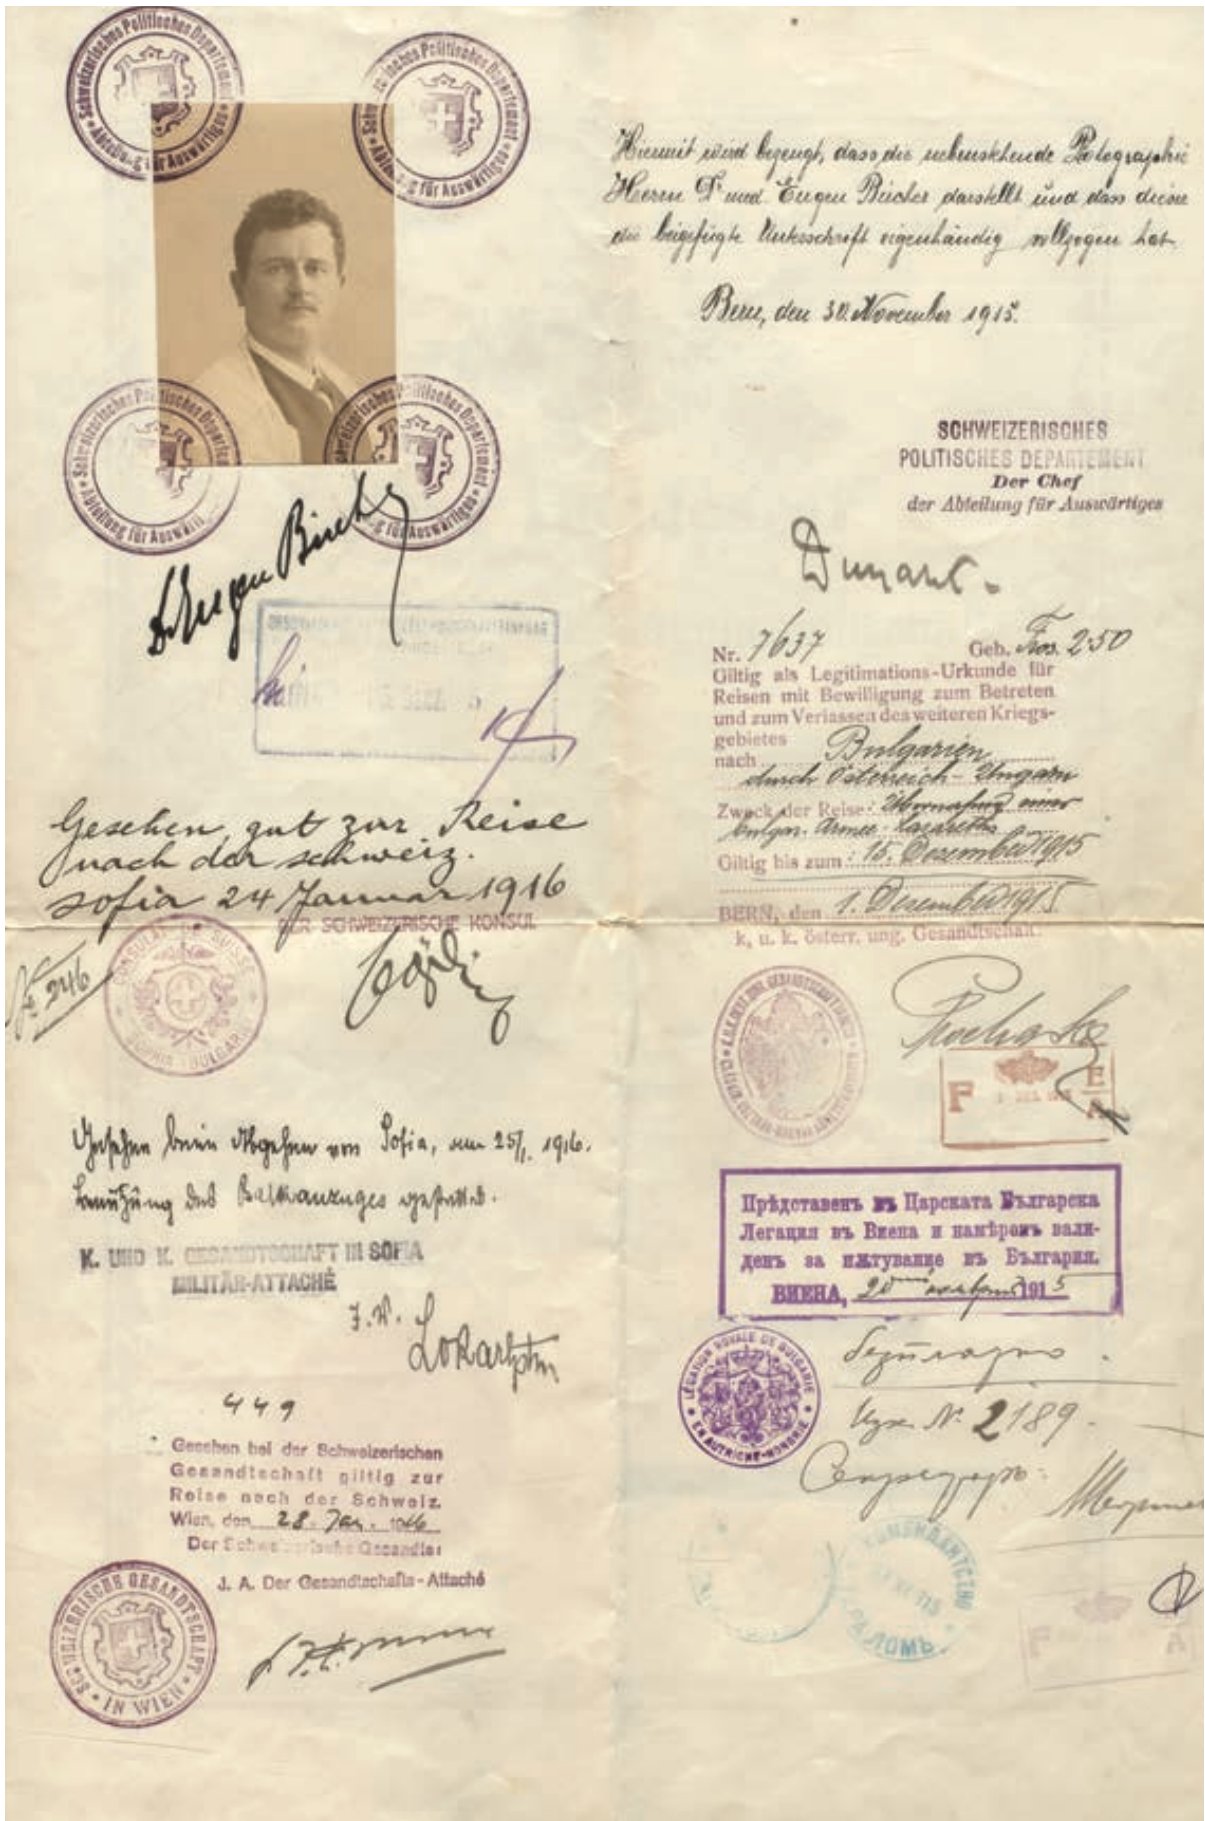 Schweizerisches Politisches Departement
Abteilung für Auswärtiges
Schweizerisches Politisches Departement
Abteilung für Auswärtiges
Schweizerisches Politisches Departement
Abteilung für Auswärtiges
Schweizerisches Politisches Departement
Abteilung für Auswärtiges
Dr Eugen Bircher
Gesehen, gut zur Reise
nach der schweiz.
Sofia 24 Januar 1916
DER SCHWEIZERISCHE KONSUL
No 246
CONSULAT DE SUISSE
SOPHIA BULGARIE
Gesehen beim Abgehen von Sofia, am 25/1. 1916.
Benützung des Balkanzuges gestattet.
K. UND K. GESANDTSCHAFT IN SOFIA
MILITÄR-ATTACHÉ
449
Gesehen bei der Schweizerischen
Gesandtschaft giltig zur
Reise nach der Schweiz.
Wien, den 28. Jan. 1916
Der Schweizerische Gesandte:
J. A. Der Gesandtschafts-Attaché
SCHWEIZERISCHE GESANDTSCHAFT
IN WIEN
Hiemit wird bezeugt, dass die nebenstehende Photographie
Herrn Dr med. Eugen Bircher darstellt und dass dieser
die beigefügte Unterschrift eigenhändig vollzogen hat.
Bern, den 30. November 1915.
SCHWEIZERISCHES
POLITISCHES DEPARTEMENT
Der Chef
der Abteilung für Auswärtiges
Dunant.
Nr. 7637 Geb. Frcs. 2.50
Giltig als Legitimations-Urkunde für
Reisen mit Bewilligung zum Betreten
und zum Verlassen des weiteren Kriegs-
gebietes
nach Bulgarien
durch Österreich-Ungarn
Zweck der Reise: Übernahme eines
bulgar. Armee-Lazareths
Giltig bis zum: 15. Dezember 1915
BERN, den 1. Dezember 1915
k. u. k. österr. ung. Gesandtschaft:
F E
A
Прѣдставенъ въ Царската Българска
Легация въ Виена и намѣренъ вали-
денъ за пѫтуване въ България.
ВИЕНА, 20 ноемврий 1915
LÉGATION ROYALE DE BULGARIE
EN AUTRICHE-HONGRIE
безплатно.
Изх. № 2189.
Секретарь:
ЛОМЪ
F A